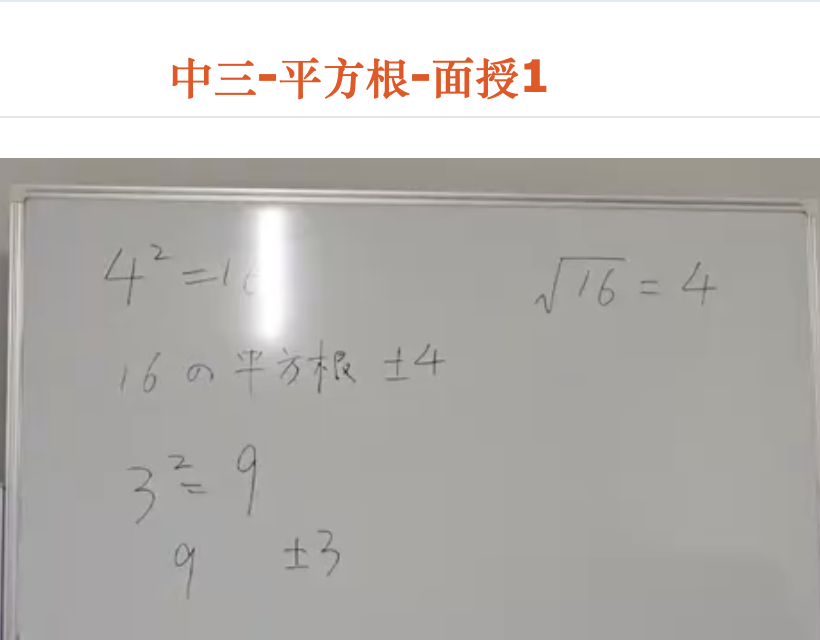 中三-平方根-面授1
4²=16
√16 = 4
16 の 平方根 ±4
3²= 9
9 ±3